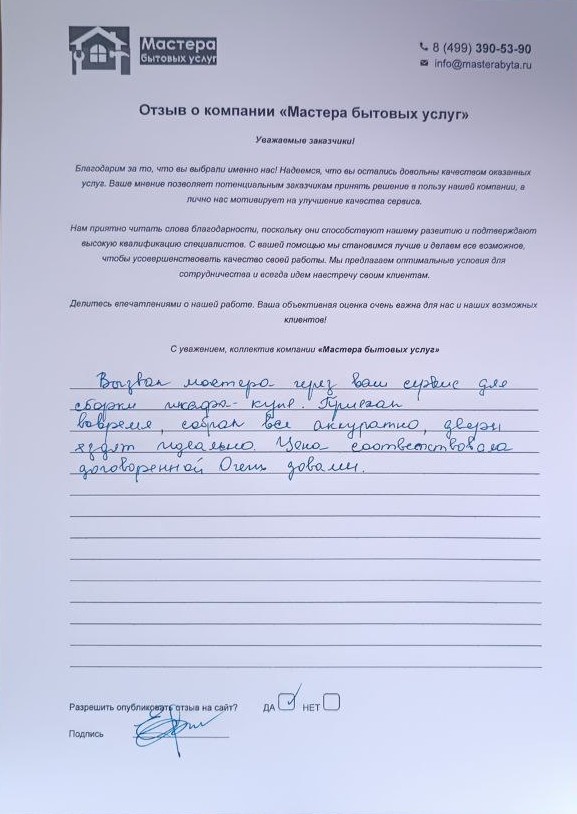 Мастера
бытовых услуг
8 (499) 390-53-90
info@masterabyta.ru
Отзыв о компании «Мастера бытовых услуг»
Уважаемые заказчики!
Благодарим за то, что вы выбрали именно нас! Надеемся, что вы остались довольны качеством оказанных
услуг. Ваше мнение позволяет потенциальным заказчикам принять решение в пользу нашей компании, а
лично нас мотивирует на улучшение качества сервиса.
Нам приятно читать слова благодарности, поскольку они способствуют нашему развитию и подтверждают
высокую квалификацию специалистов. С вашей помощью мы становимся лучше и делаем все возможное,
чтобы усовершенствовать качество своей работы. Мы предлагаем оптимальные условия для
сотрудничества и всегда идем навстречу своим клиентам.
Делитесь впечатлениями о нашей работе. Ваша объективная оценка очень важна для нас и наших возможных
клиентов!
С уважением, коллектив компании «Мастера бытовых услуг»
Вызвал мастера через ваш сервис для
сборки шкафа-купе. Приехал
вовремя, собрал все аккуратно, двери
ездят идеально. Цена соответствовала
договоренной Очень довален.
Разрешить опубликовать отзыв на сайт? ДА НЕТ
Подпись